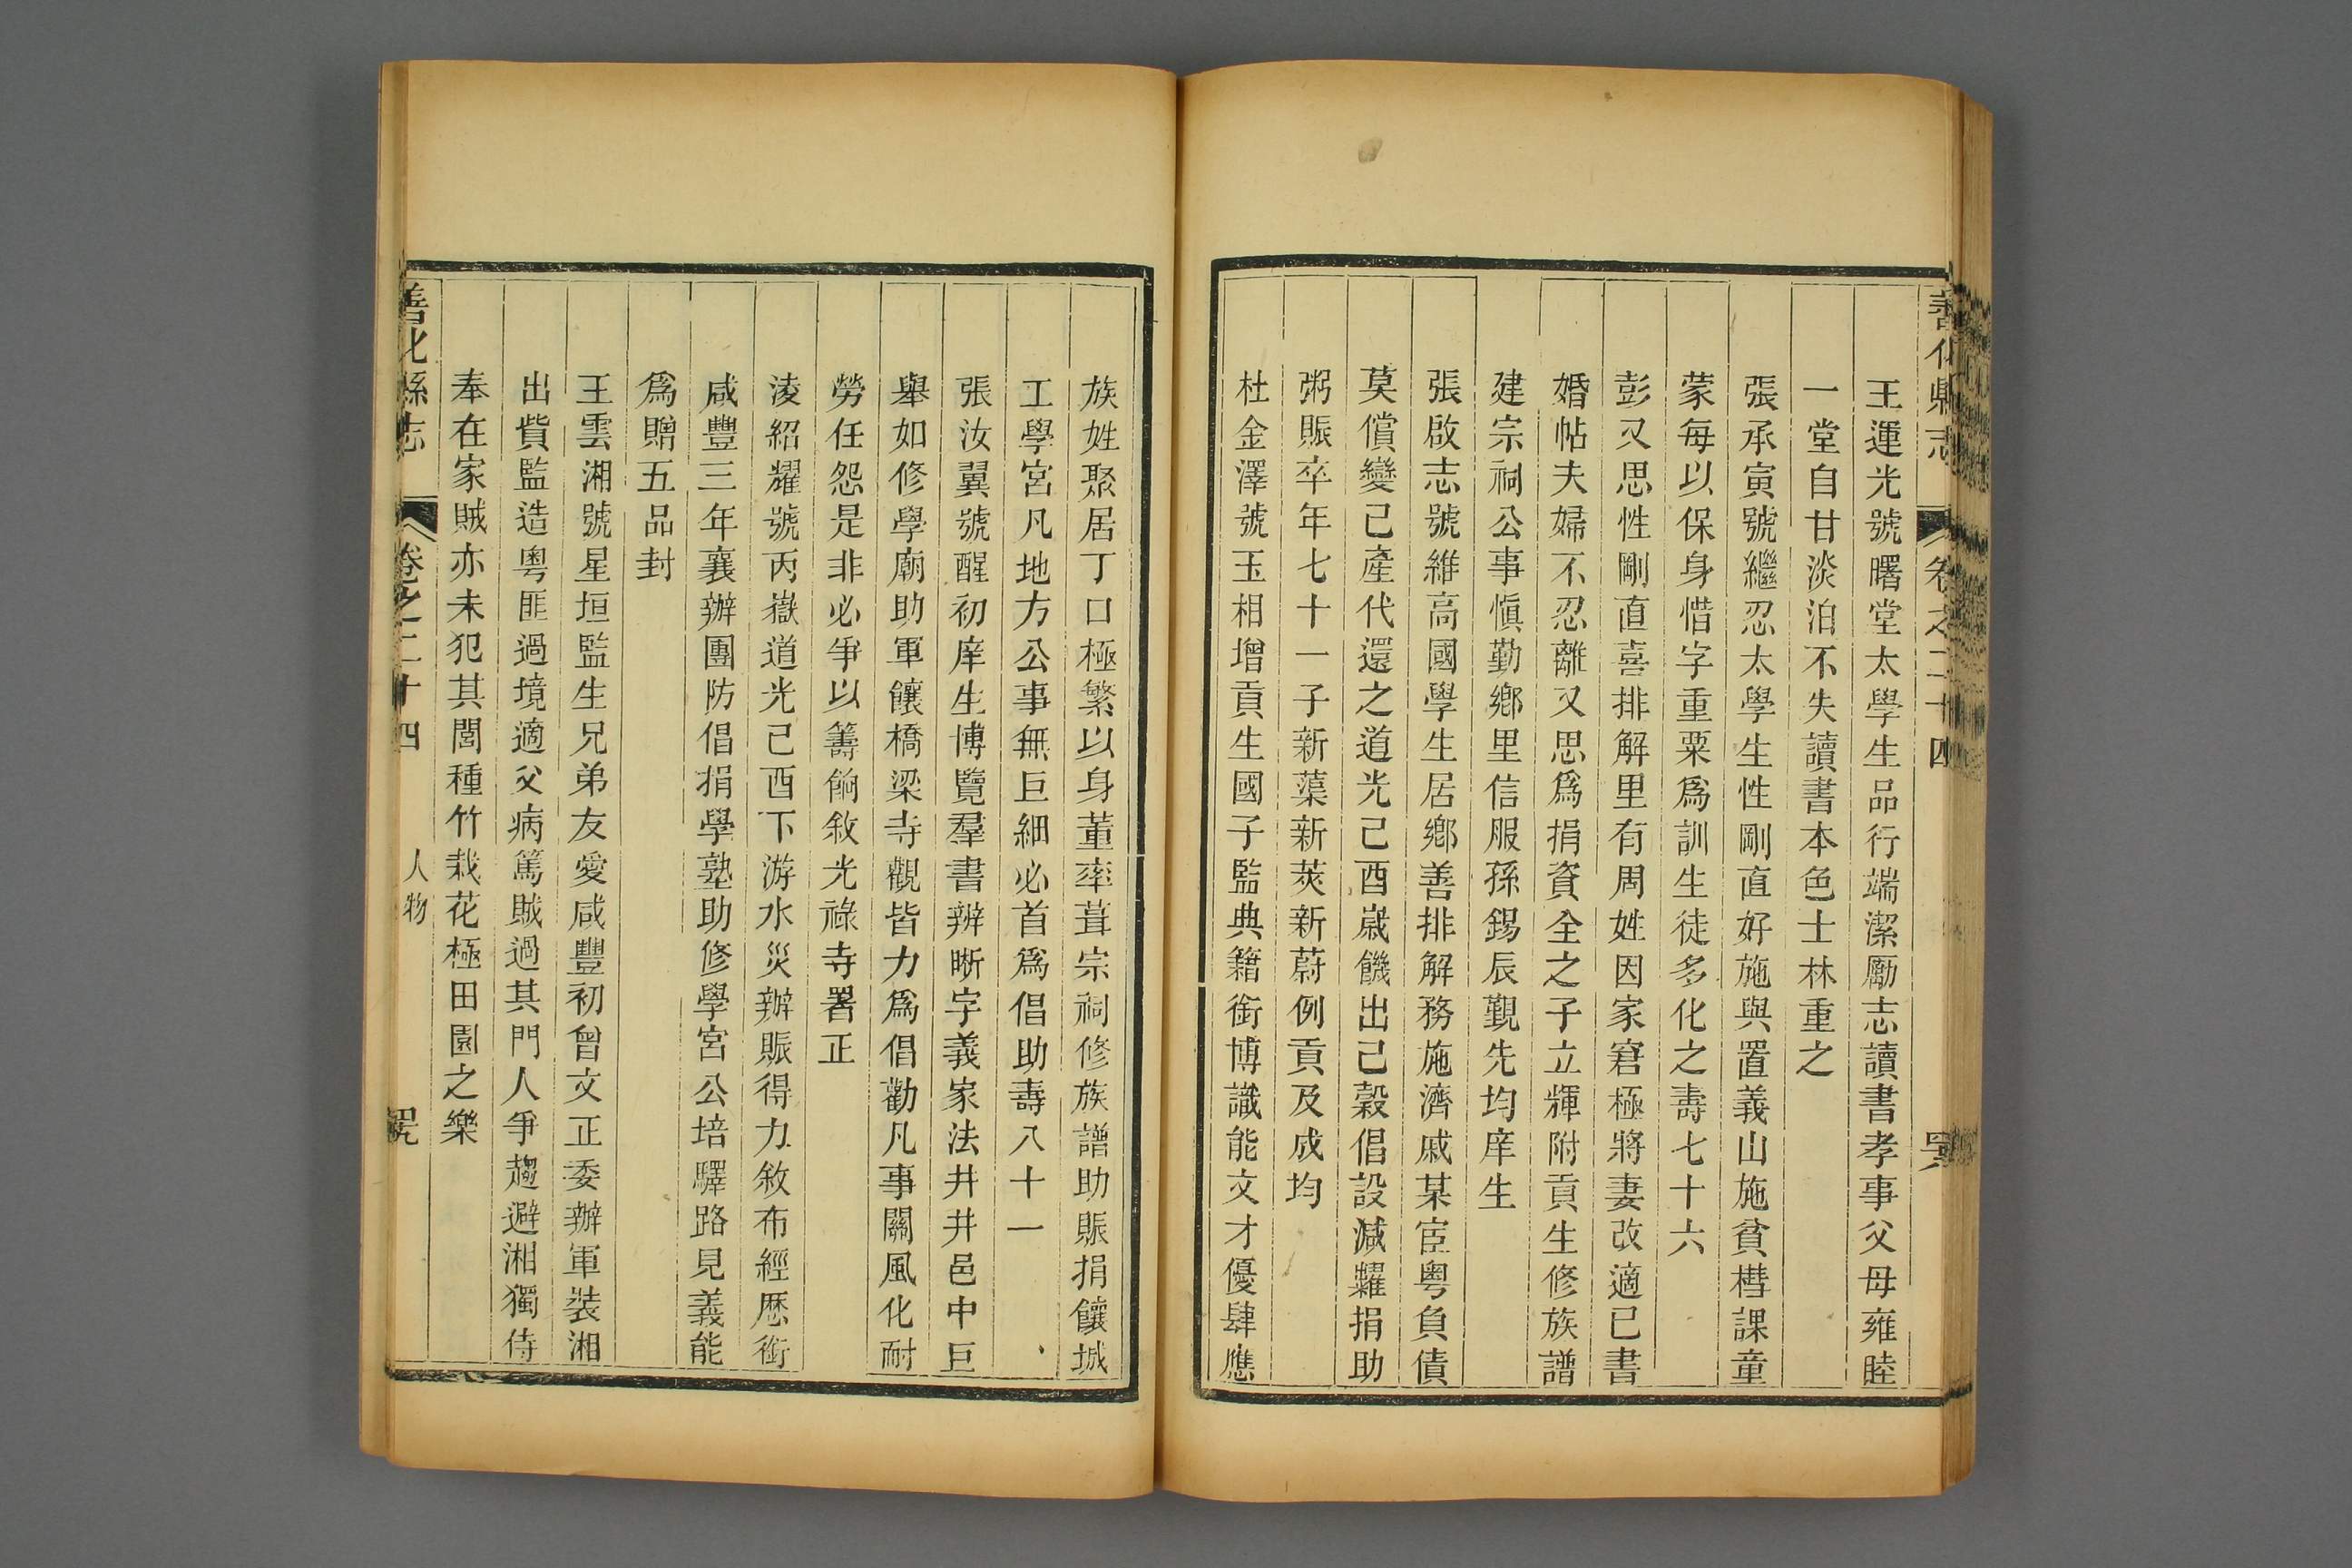 善化縣志 卷之二十四
王運光號曙堂太學生品行端潔勵志讀書孝事父母雍睦
一堂自甘淡泊不失讀書本色士林重之
張承寅號繼忍太學生性剛直好施與置義山施貧槥課童
蒙每以保身惜字重粟爲訓生徒多化之壽七十六
彭又思性剛直喜排解里有周姓因家窘極將妻改適已書
婚帖夫婦不忍離又思爲捐資全之子立輝附貢生修族譜
建宗祠公事愼勤鄉里信服孫錫辰覲先均庠生
張啟志號維高國學生居鄉善排解務施濟戚某宦粵負債
莫償變己產代還之道光己酉歲饑出己穀倡設減糶捐助
粥賑卒年七十一子新蕖新莢新蔚例貢及成均
杜金澤號玉相增貢生國子監典籍銜博識能文才優肆應
族姓聚居丁口極繁以身董率葺宗祠修族譜助賑捐饟城
工學宮凡地方公事無巨細必首爲倡助壽八十一
張汝翼號醒初庠生博覽羣書辨晰字義家法井井邑中巨
舉如修學廟助軍饟橋梁寺觀皆力爲倡勸凡事關風化耐
勞任怨是非必爭以籌餉敘光祿寺署正
淩紹耀號丙嶽道光己酉下游水災辦賑得力敘布經歷銜
咸豐三年襄辦團防倡捐學塾助修學宮公培驛路見義能
爲贈五品封
王雲湘號星垣監生兄弟友愛咸豐初曾文正委辦軍裝湘
出貲監造粵匪過境適父病篤賊過其門人爭趨避湘獨侍
奉在家賊亦未犯其閭種竹栽花極田園之樂
善化縣志 卷之二十四 人物